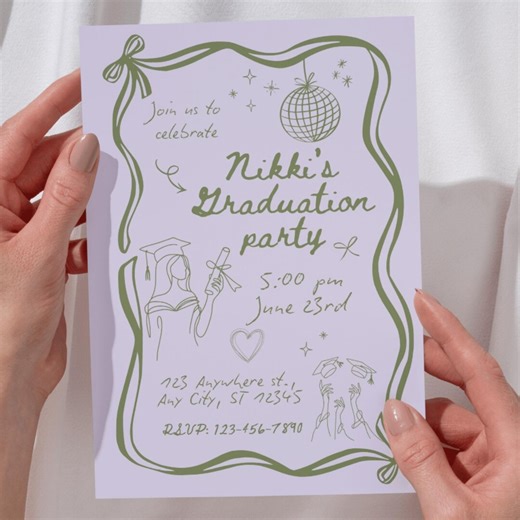 Join us to
celebrate
Nikki's
Graduation
party
5:00 pm
June 23rd
123 Anywhere st.,
Any City, ST 12345
RSVP: 123-456-7890